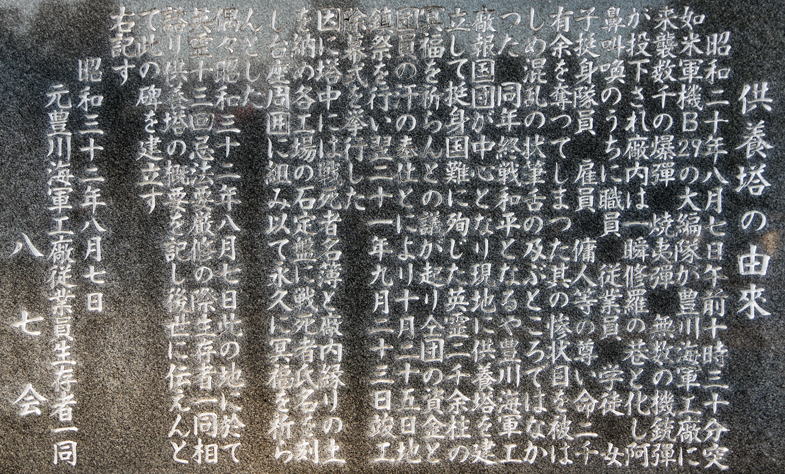 供養塔の由來
昭和二十年八月七日午前十時三十分空
如米軍機B29の大編隊が豊川海軍工廠に
来襲数千の爆彈 焼夷彈 無数の機銃彈
が投下され廠内は一瞬修羅の巷と化し阿
鼻叫喚のうちに職員 従業員 学徒 女
子挺身隊員 雇員 傭人等の尊い命二千
有余を奪つてしまつた其の惨状目を被は
しめ混乱の状筆舌の及ぶところではなか
つた 同年終戦和平となるや豊川海軍工
廠報国団が中心となり現地に供養塔を建
立して挺身国難に殉じた英霊二千余柱の
冥福を祈らんとの議が起り全団の資金と
団員の汗の奉仕とにより十月二十五日地
鎮祭を行い翌二十一年九月二十三日竣工
除幕式を挙行した
因に塔中には戦死者名簿と廠内縁りの土
を納め各工場の石定盤に戦死者氏名を刻
し台座周囲に組み以て永久に冥福を祈ら
んとした
偶々昭和三十二年八月七日此の地に於て
英霊十三回忌法要厳修の際生存者一同相
諮り供養塔の概要を記し後世に伝えんと
て此の碑を建立す
右記す
昭和三十二年八月七日
元豊川海軍工廠従業員生存者一同
八七会